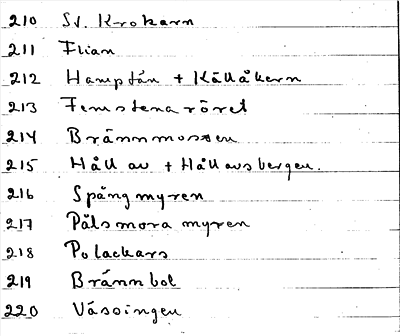 210 Sv. Krokarn
211 Flian
212 Hamptån + Källåkern
213 Femstenaröret
214 Brännmossen
215 Håll av + Hållavsbergen.
216 Spångmyren
217 Pålsmora myren
218 Polackars
219 Brännbol
220 Vässingen